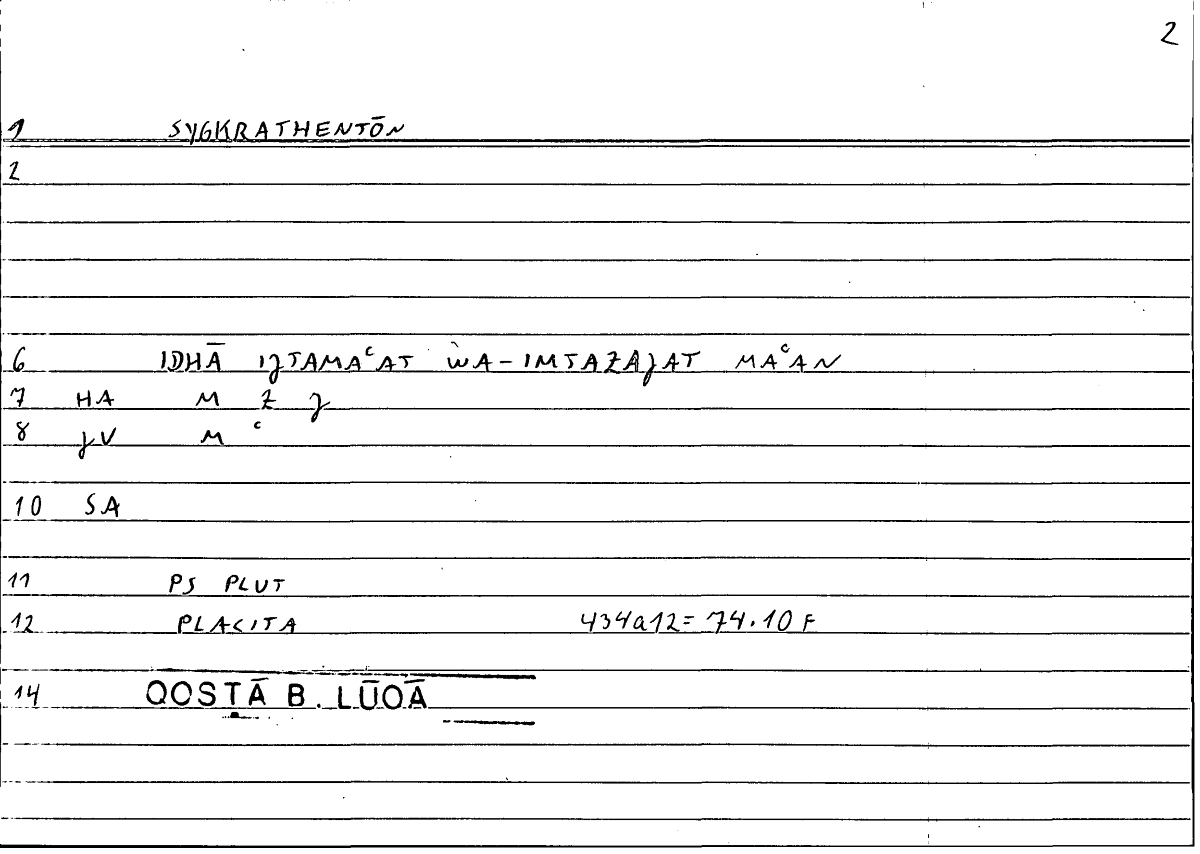 2
1 SYGKRATHENTŌN
2
6 IDHĀ IJTAMAᶜAT WA-IMTAZAJAT MAᶜAN
7 HA M Z J
8 JV M ᶜ
10 SA
11 PS PLUT
12 PLACITA 434a12= 74.10 F
14 QOSṬĀ B. LŪQĀ